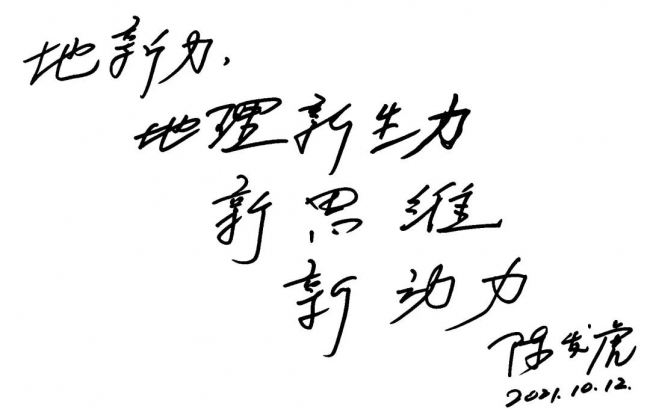 地新力，
地理新生力
新思维
新动力
陈发虎
2021.10.12.